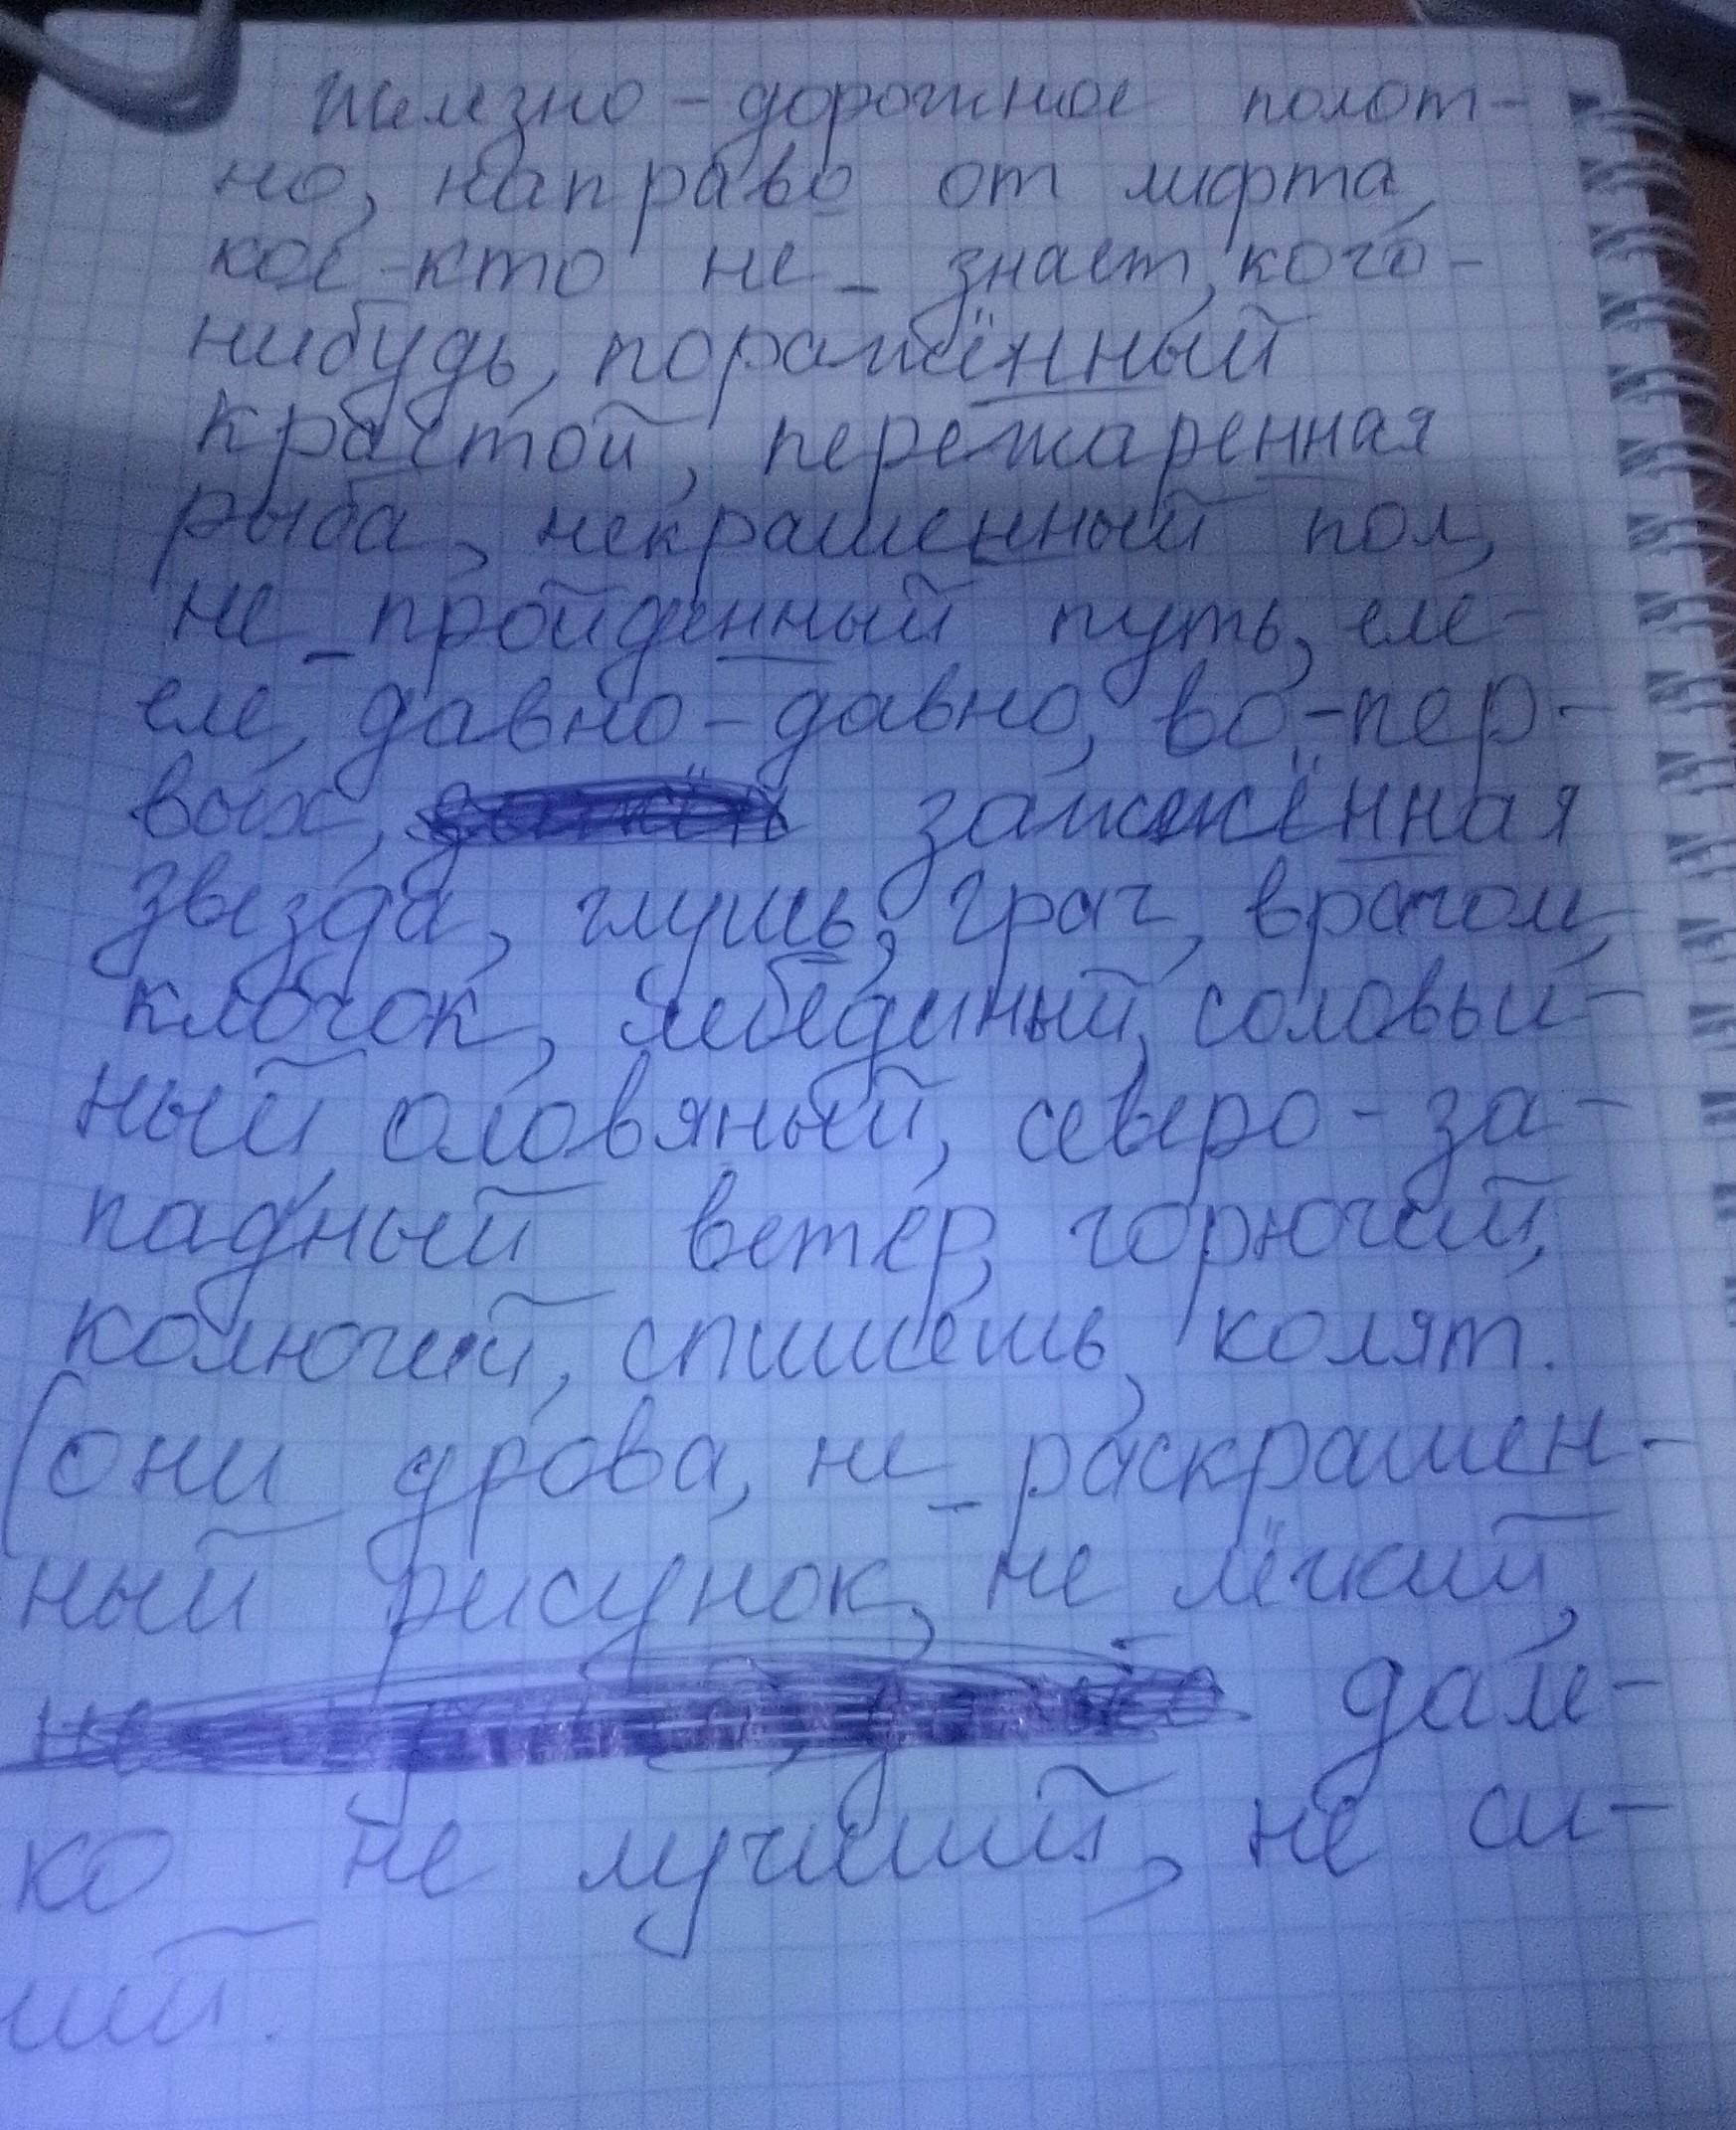 Железно-дорожное полот-
но, направо от лифта,
кое-кто не_знает, кого-
нибудь, поражённый
красотой, пережаренная
рыба, некрашенный пол,
не_пройденный путь, еле-
еле, давно-давно, во-пер-
вых, зажжённая
звезда, глушь, грач, врачом,
клочок, лебединый, соловьи-
ный, оловяный, северо-за-
падный ветер, горючий,
колючий, спишешь, колят.
(они дрова, не_раскрашен-
ный рисунок, не лёгкий,
дале-
ко не лучший, не си-
ний.